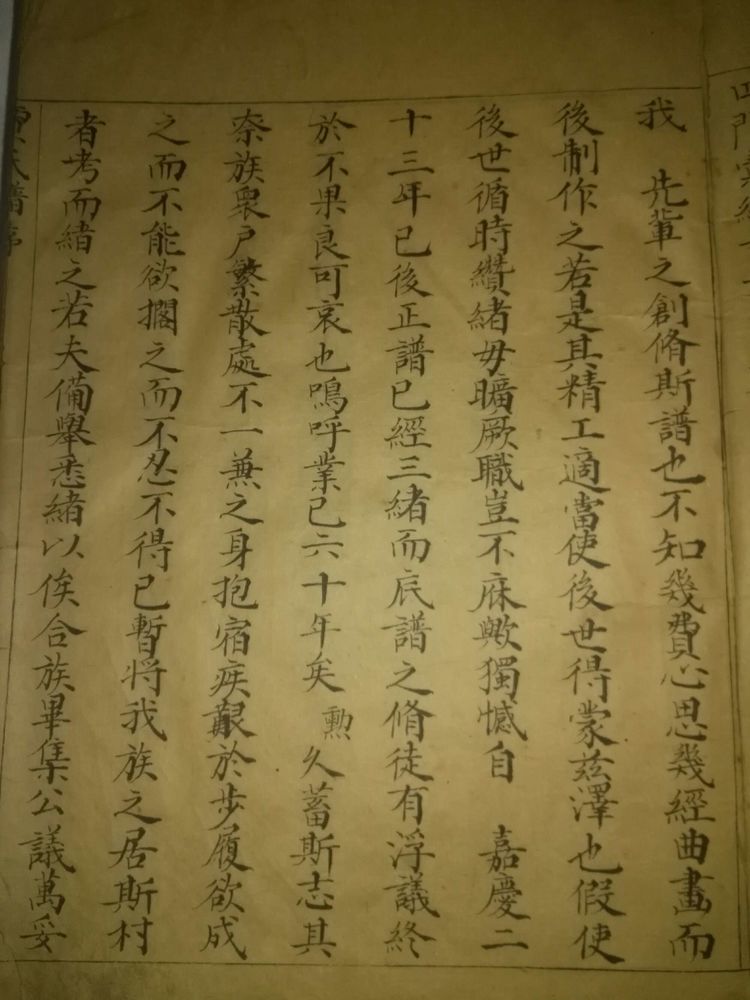 我　先軰之創脩斯譜也不知幾費心思幾經曲畫而
後制作之若是其精工適當使後世得蒙茲澤也假使
後世循時纘緒毋曠厥職豈不庥歟獨憾自　嘉慶二
十三年已後正譜已經三緒而底譜之脩徒有浮議終
於不果良可哀也嗚呼業已六十年矣　勲久蓄斯志其
奈族衆戶繁散處不一兼之身抱宿疾艱於步履欲成
之而不能欲擱之而不忍不得已暫將我族之居斯村
者考而緒之若夫備舉悉緒以俟合族畢集公議萬妥
氏譜序